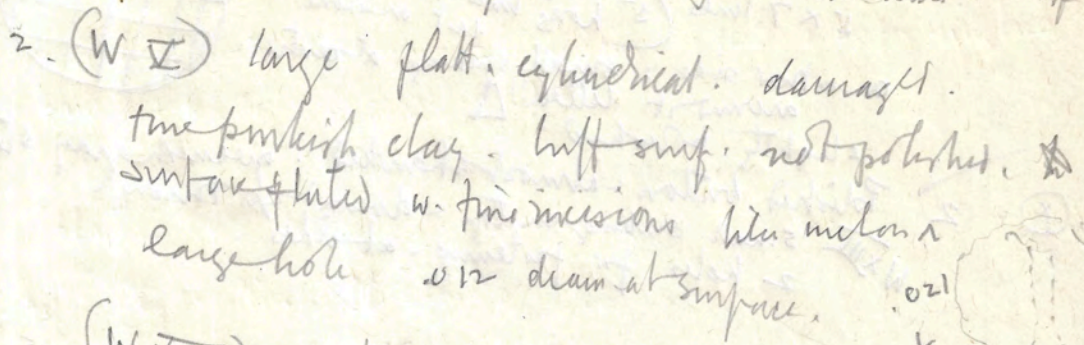 2. (W V) large flatt. cylindrical. damaged.
fine pinkish clay. buff surf. not polished.
surface fluted w. fine incisions like melon
large hole .012 diam at surface. .021